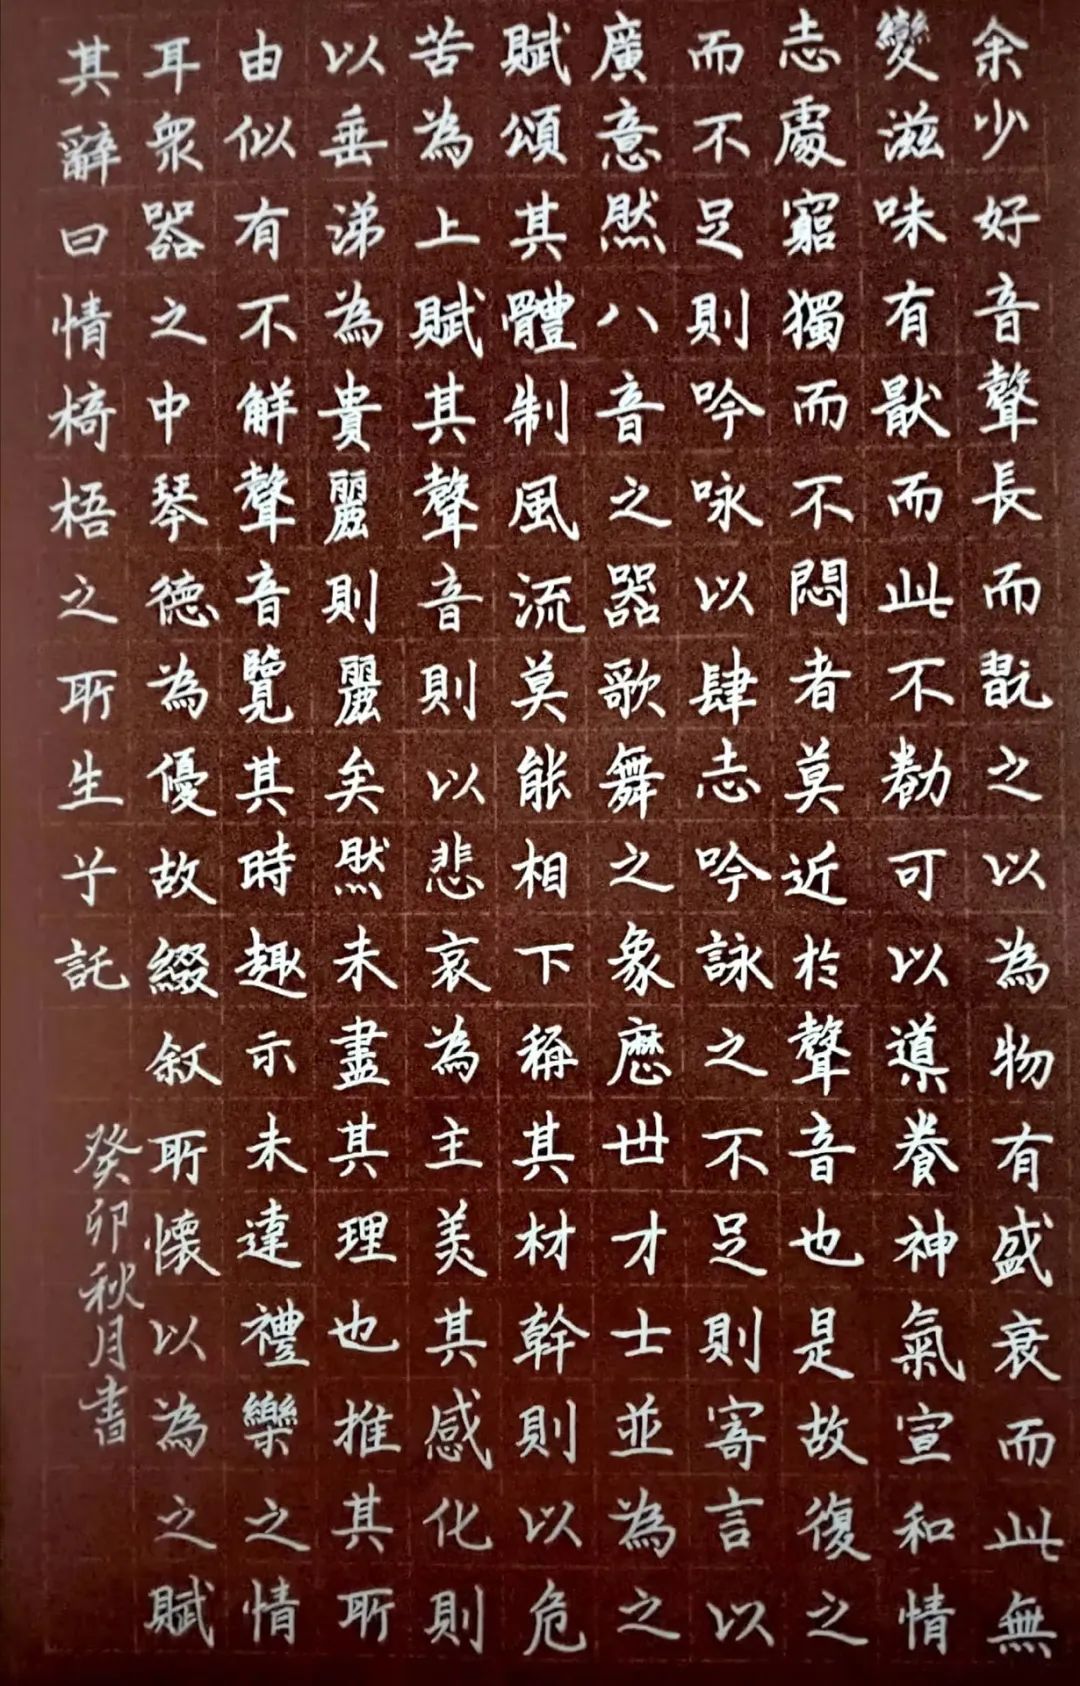 余少好音聲長而翫之以為物有盛衰而此無
變滋味有猒而此不勌可以導養神氣宣和情
志處窮獨而不悶者莫近於聲音也是故復之
而不足則吟咏以肆志吟詠之不足則寄言以
廣意然八音之器歌舞之象歷世才士並為之
賦頌其體制風流莫能相下稱其材幹則以危
苦為上賦其聲音則以悲哀為主美其感化則
以垂涕為貴麗則麗矣然未盡其理也推其所
由似有不解聲音覽其時趣示未達禮樂之情
耳眾器之中琴德為優故綴叙所懷以為之賦
其辭曰情椅梧之所生兮託
癸卯秋月書